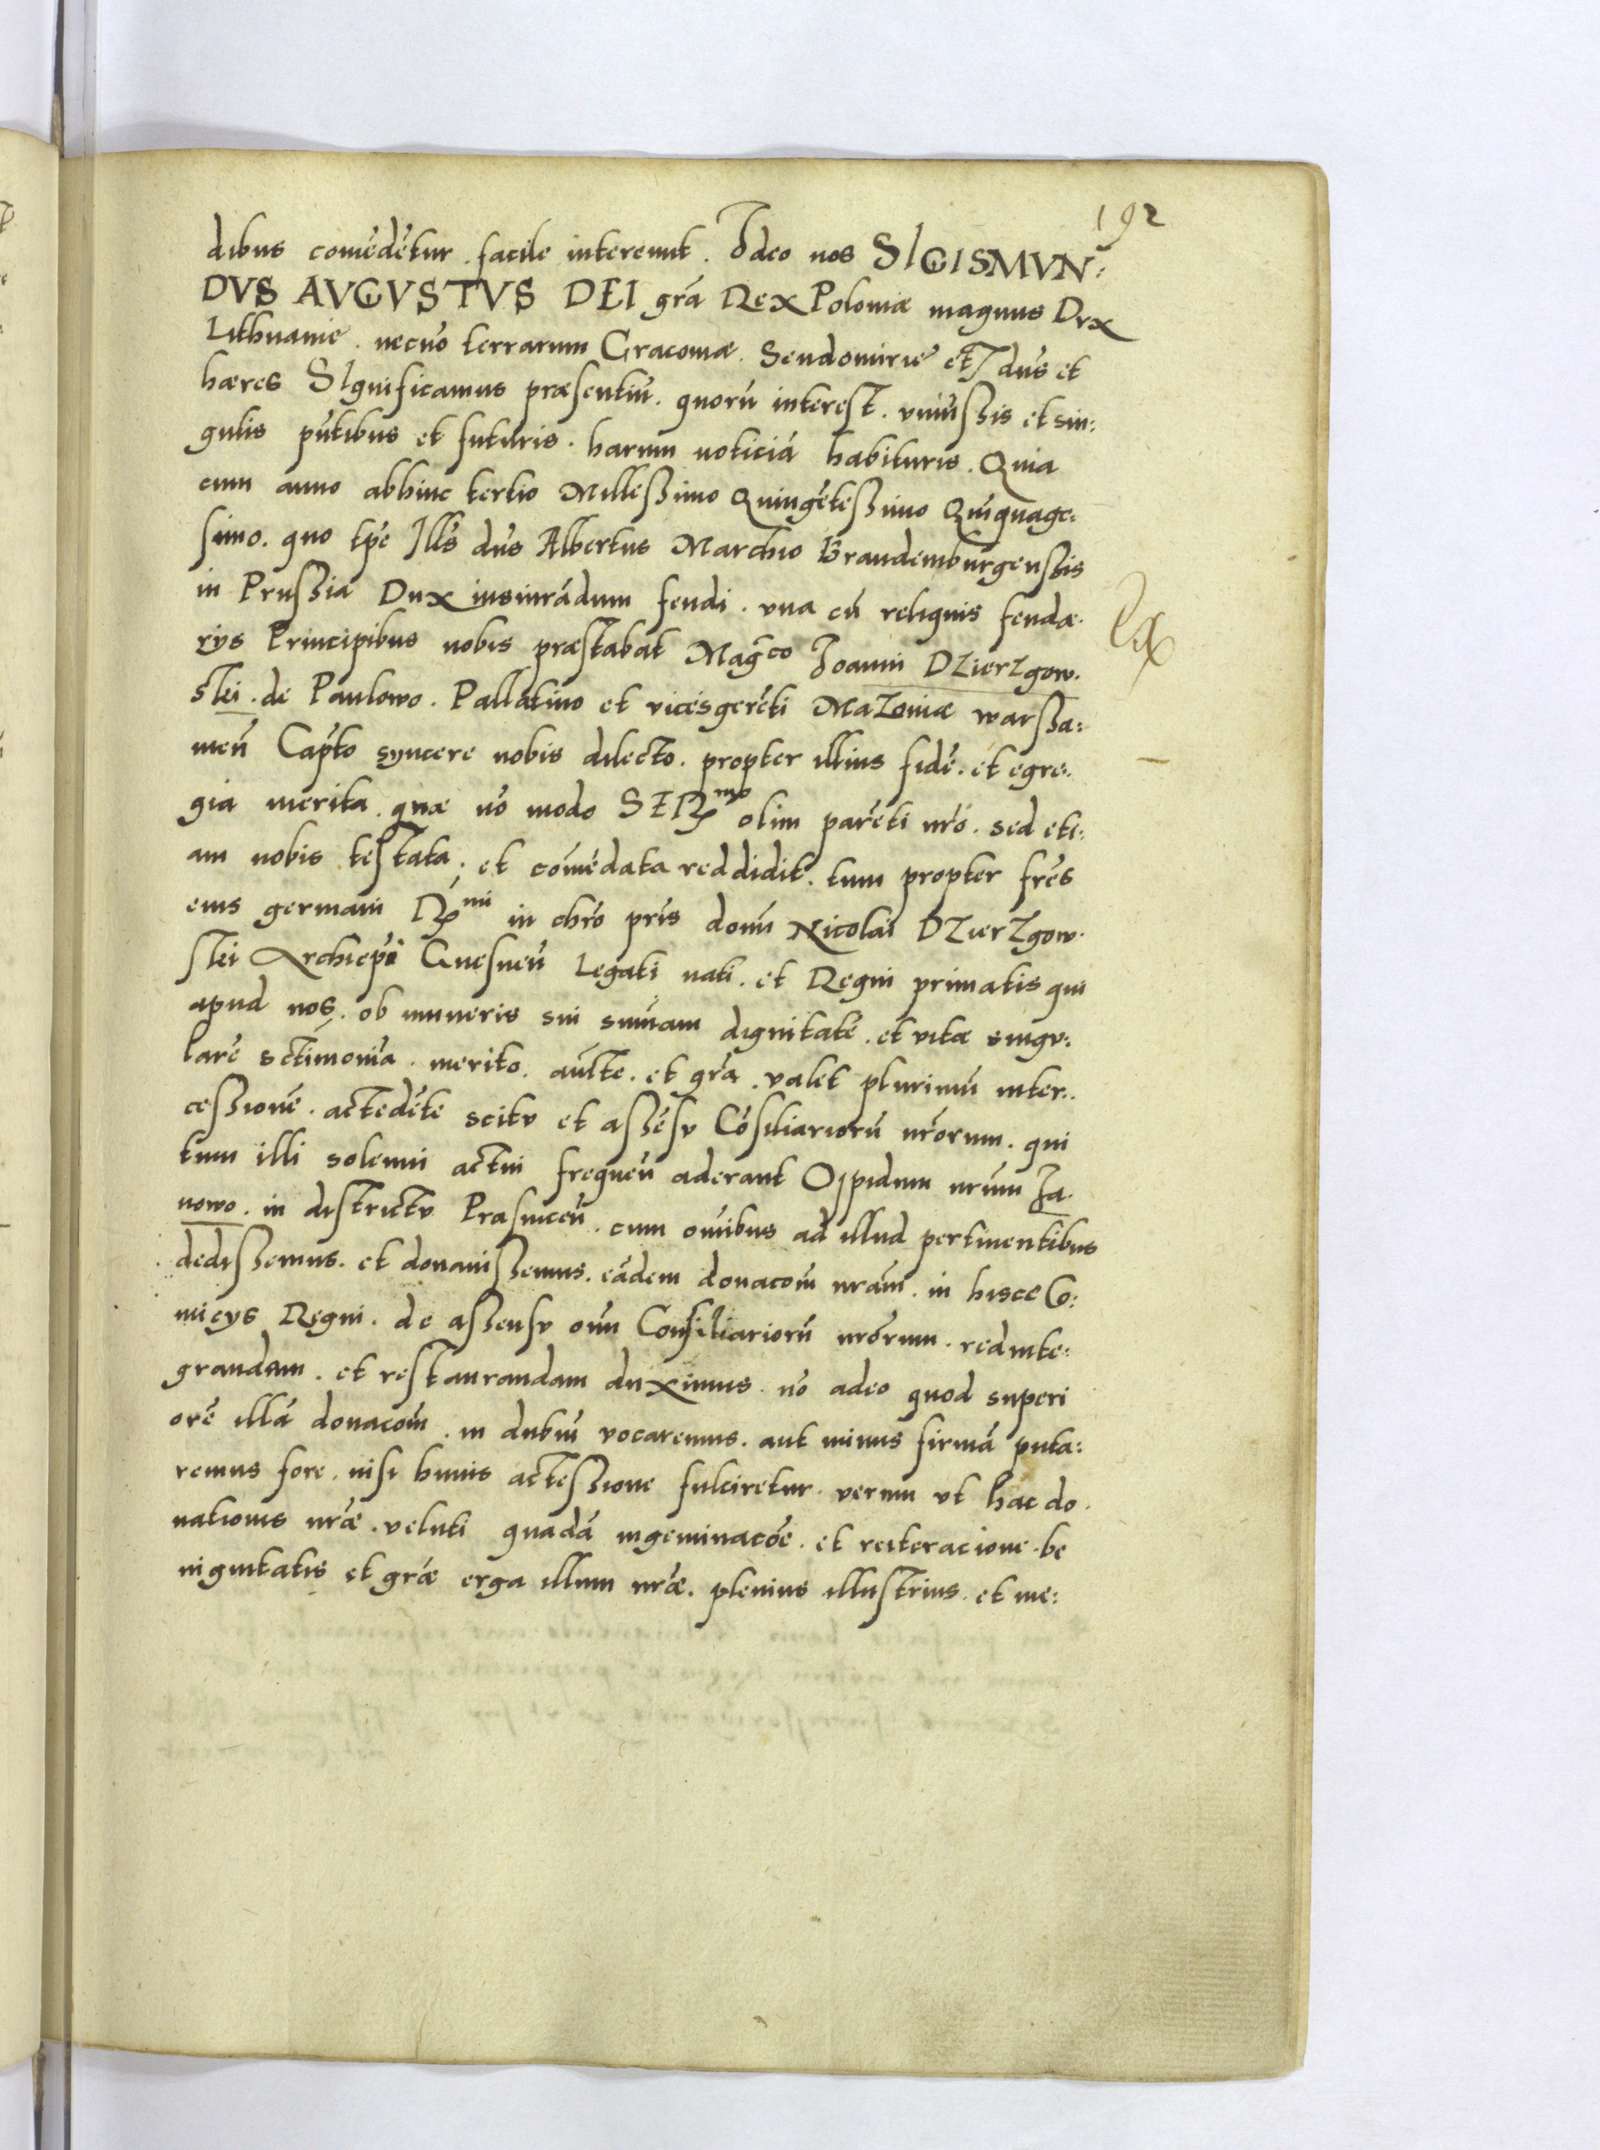 192
dibus comẽdẽtur. facile intereunt. Ideo nos SIGISMVN:
DVS AVGVSTVS DEI grã Rex Poloniæ magnus Dvx
Lithuanie. necnõ terrarum Cracoviæ. Sendomirie etc dñs et
hæres SIgnificamus præsentiũ. quorũ interest. vniũssis et sin:
gulis pñtibus et futuris. harum noticiã habituris. Quia
cum anno abhinc tertio Millessimo Quingẽtessimo Quĩquage:
simo. quo tpẽ Jlls̃ dñs Albertus Marchio Brandemburgenssis
in Prussia Dux iusiurãdum feudi. vna cũ reliquis feudæ.
rys Principibus nobis præstabat Magco Joanni DZierZgow.
skij. de Paulowo. Pallatino et vicesgerẽti MaZoviæ warssa:
uieñ Capto syncere nobis dilecto. propter illius fidẽ. et egre:
gia merita. quæ nõ modo SERmo olim parẽti nrõ. sed eti:
am nobis testata. et comẽdata reddidit. tum propter frẽs
eius germani Rmi in chrõ pris domĩ Nicolai DZierZgow.
skij Archiepi Gnesneñ Legati nati. et Regni primatis qui
apud nos. ob muneris sui sum̃am dignitatẽ. et vitæ singv:
larẽ sctimoniã. merito. aũlte. et grã. valet plurimũ inter:
cessionẽ. actedẽte scitv et assẽsv Cõsiliariorũ nrõrum. qui
tum illi solemni actui frequeñ aderant Oppidum nrũm Ja.
nowo. in districtv Prasniceñ. cum omĩbus ad illud pertinentibus
dedissemus. et donauissemus. eãdem donacoñi nrãm. in hisce Co:
micys Regni. de assensv omñ Consiliariorũ nrõrum. redinte:
grandam. et restaurandam duximus. nõ adeo quod superi
orẽ illã donacoñi. in dubiũ vocaremus. aut minus firmã puta:
remus fore. nisi huius actessione fulciretur. verum vt hac do.
nationis nræ̃. veluti quadã ingeminacõe. et reiteracione. be
nignitatis et græ̃ erga illum nræ̃. plenius illustrius. et me: